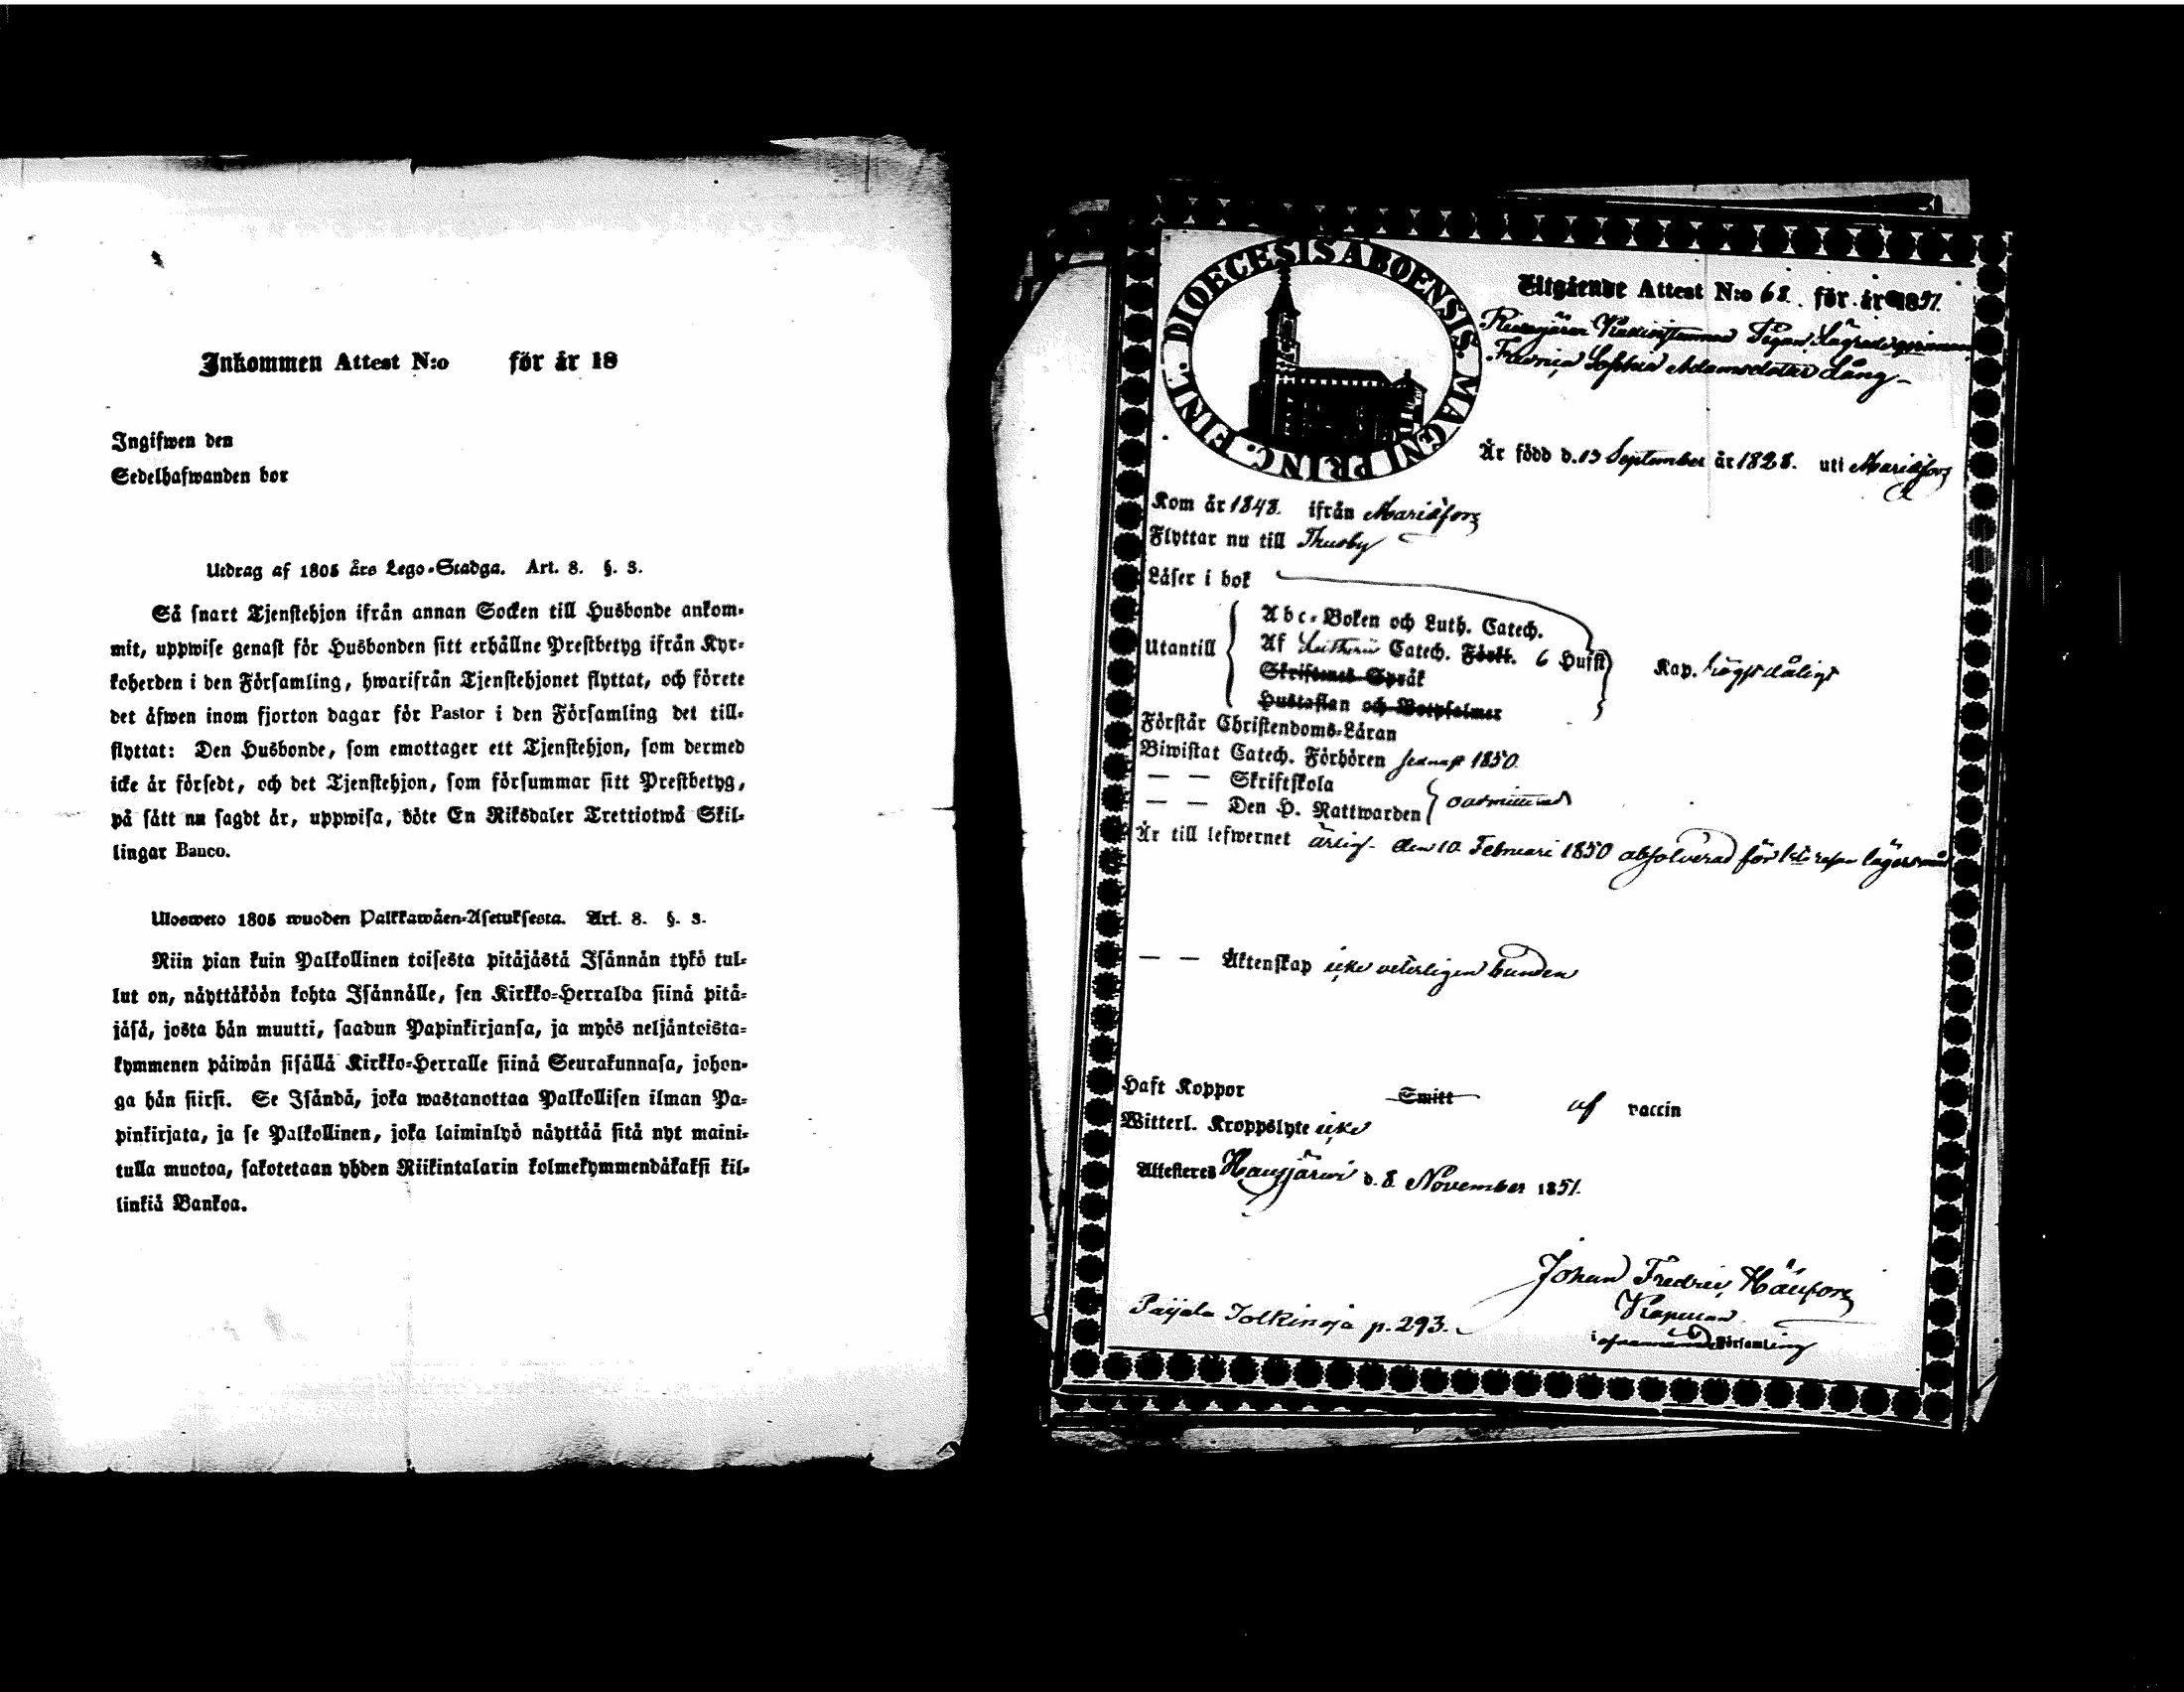 Inkommen Attest N:o för år 18
Ingifwen den
Sedelhafwanden bor
Utdrag af 1805 års Lego-Stadga. Art. 8. §. 3.
Så snart Tjenstehjon ifrån annan Socken till Husbonde ankom-
mit, uppwise genast för Husbonden sitt erhållne Prestbetyg ifrån Kyr-
koherden i den Församling, hwarifrån Tjenstehjonet flyttat, och förete
det äfwen inom fjorton dagar för Pastor i den Församling det till-
flyttat: Den Husbonde, som emottager ett Tjenstehjon, som dermed
icke är försedt, och det Tjenstehjon, som försummar sitt Prestbetyg,
på sätt nu sagdt är, uppwisa, böte En Riksdaler Trettiotwå Skil-
lingar Banco.
Ulosweto 1805 wuoden Palkkawäen-Asetuksesta. Art. 8. §. 3.
Niin pian kuin Palkollinen toisesta pitäjästä Isännän tykö tul-
lut on, näyttäköön kohta Isännälle, sen Kirkko-Herralda siinä pitä-
jäsä, josta hän muutti, saadun Papinkirjansa, ja myös neljäntoista-
kymmenen päiwän sisällä Kirkko-Herralle siinä Seurakunnasa, johon-
ga hän siirsi. Se Isändä, joka wastanottaa Palkollisen ilman Pa-
pinkirjata, ja se Palkollinen, joka laiminlyö näyttää sitä nyt maini-
tulla muotoa, sakotetaan yhden Riikintalarin kolmekymmendäkaksi kil-
linkiä Bankoa.
DIOECESIS ABOENSIS. MAGNI PRINC. FINL.
Utgående Attest N:o 68. för år 1851.
Pigan
Sophia Adamsdotter Lång
Är född d. 13 September år 1828. uti Mariäfors
Kom år 1848. ifrån Mariäfors
Flyttar nu till Thusby
Läser i bok
Utantill
Abc-Boken och Luth. Catech.
Af Lutheri Catech. Förkl. 6 Hufst
Skriftenes Språk
Hustaflan och Botpsalmer
Kap. högst dåligt
Förstår Christendoms-Läran
Biwistat Catech. Förhören sednast 1850.
— — Skriftskola
— — Den H. Nattwarden oadmitterad
Är till lefwernet ärlig. den 10. Februari 1850 absolverad för 1sta resan lägersmål
— — Äktenskap icke veterligen bunden
Haft Koppor Smitt af vaccin
Witterl. Kroppslyte icke
Attesteres Hausjärwi d. 8 November 1851.
Johan Fredric
Kapellan
i ofvannämnde Församling
Paijala Tolkinoja p. 293.